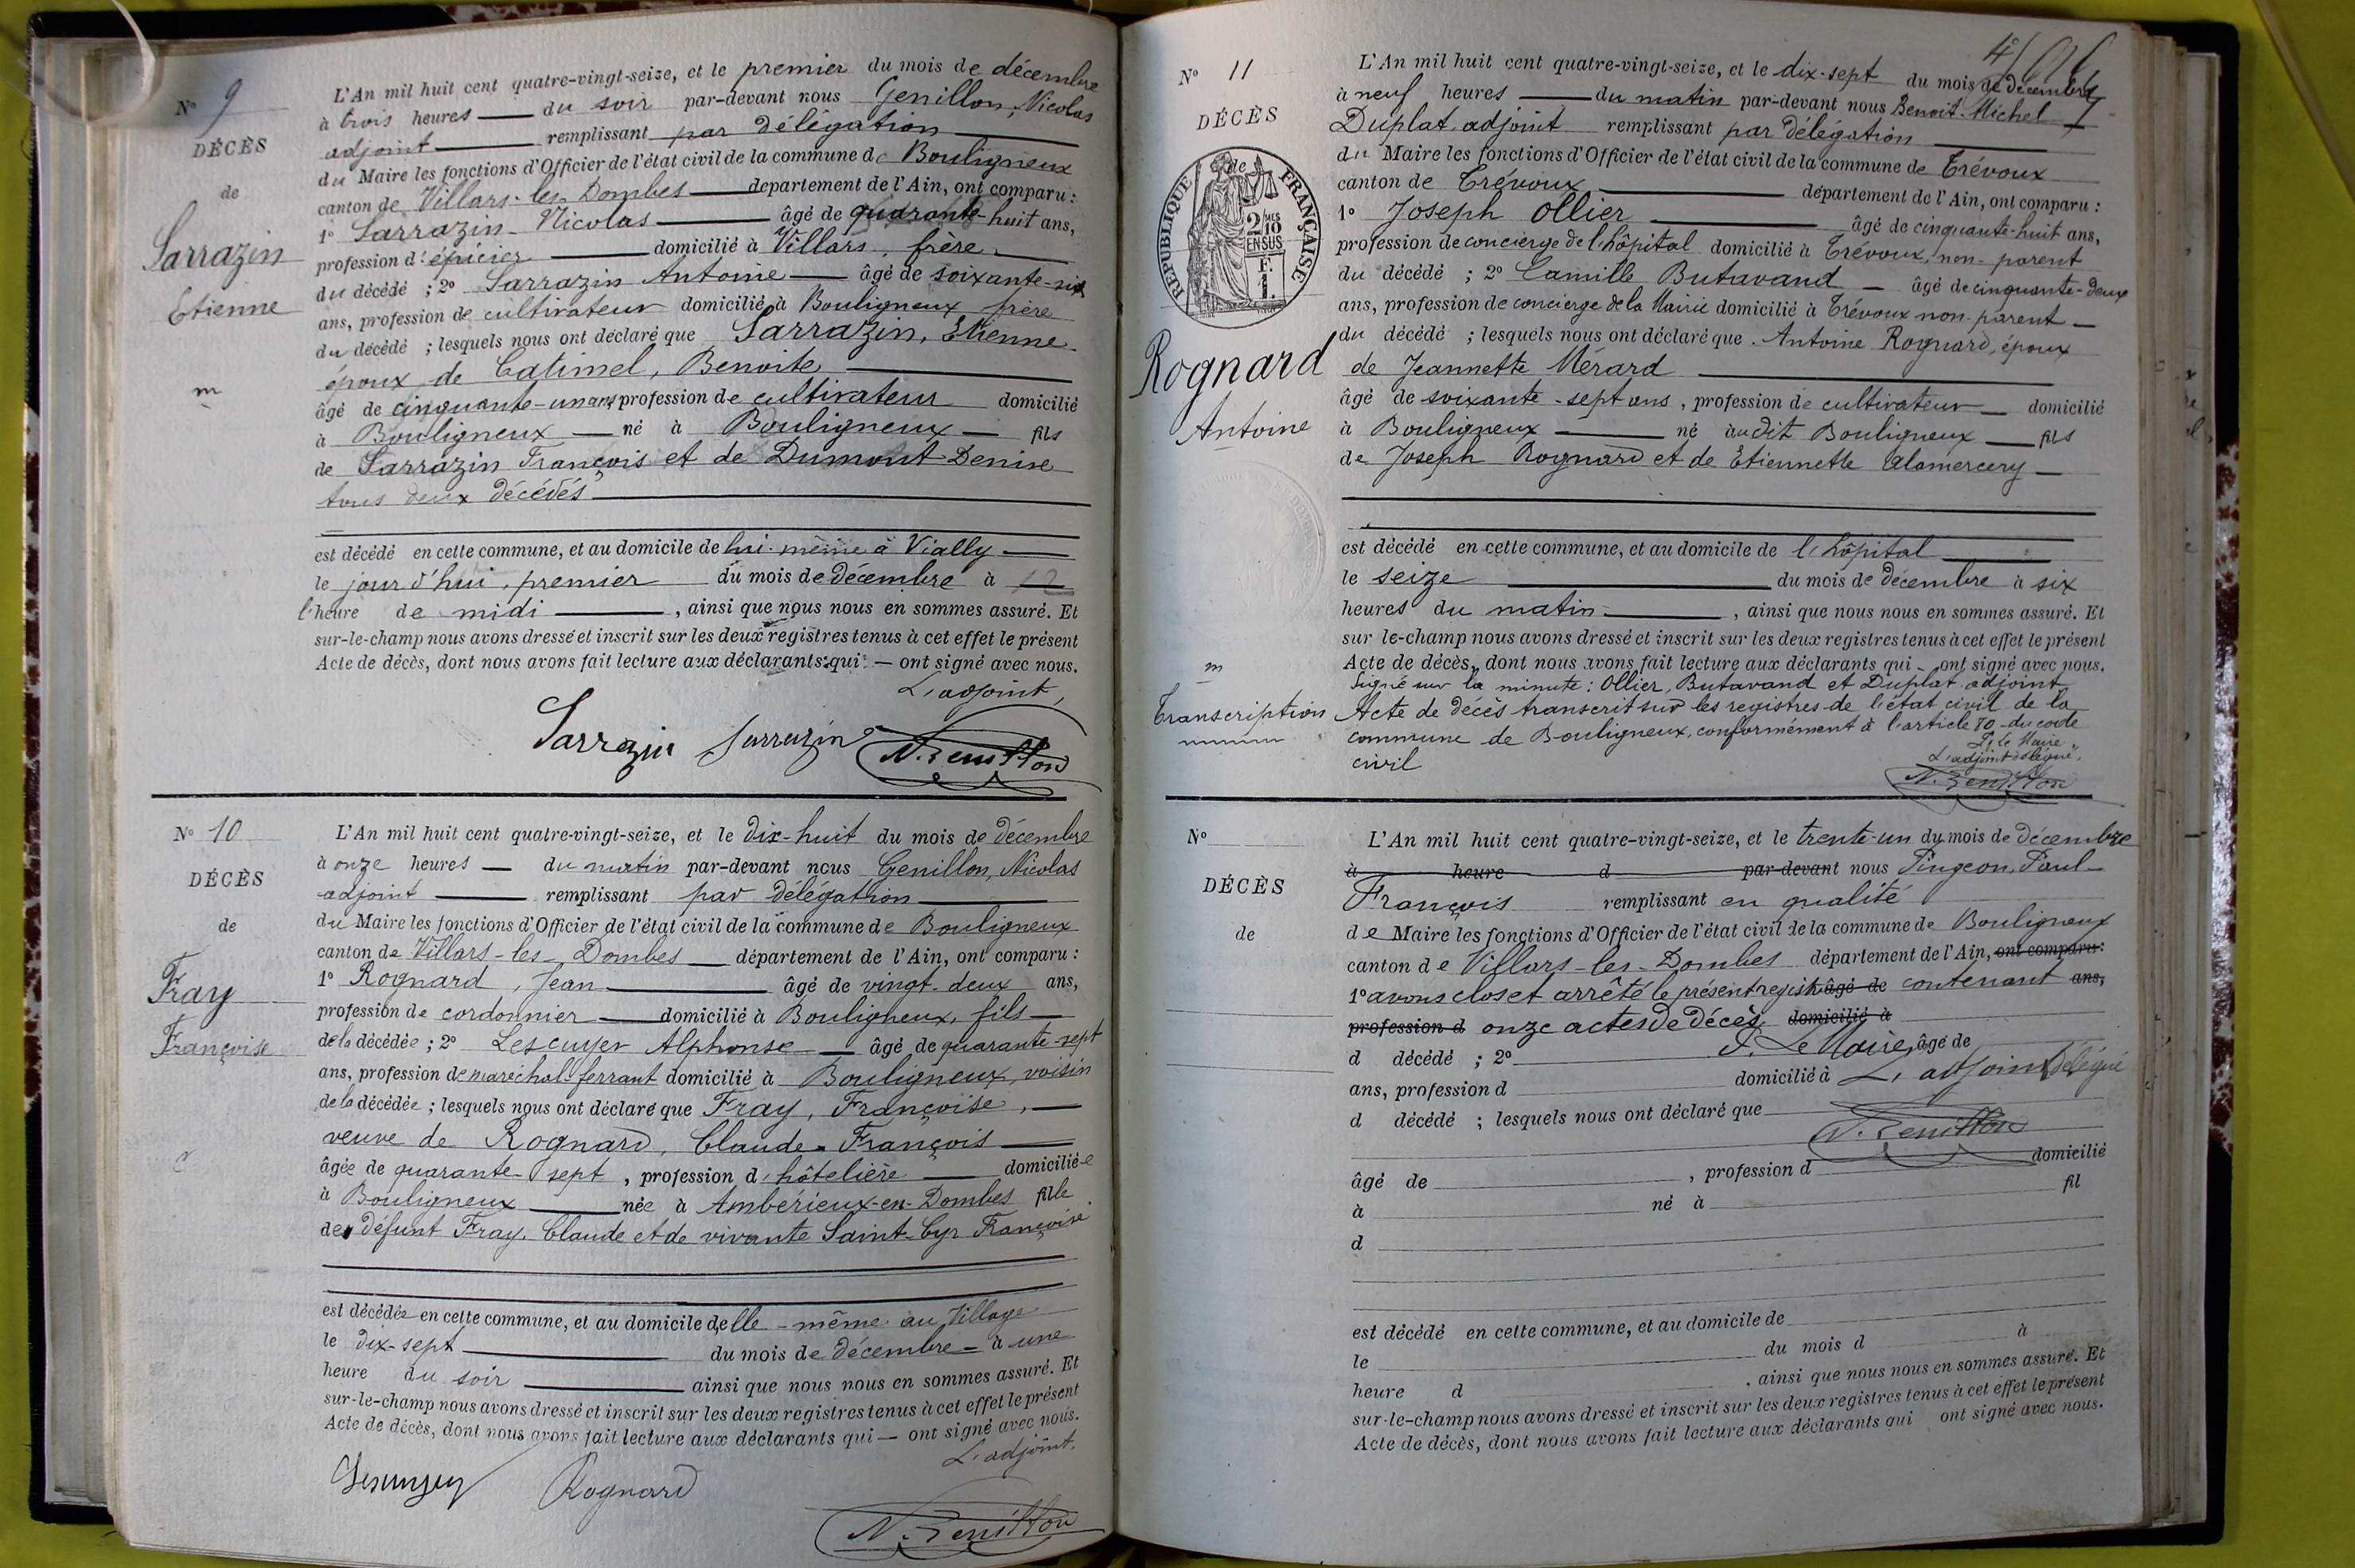 N° 9
DÉCÈS
de
Sarrazin
Etienne
m
L'An mil huit cent quatre-vingt-seize, et le premier du mois de décembre
à trois heures du soir par-devant nous Genillon, Nicolas
adjoint remplissant par délégation
du Maire les fonctions d'Officier de l'état civil de la commune de Bouligneux
canton de Villars-les-Dombes département de l'Ain, ont comparu :
1° Sarrazin Nicolas âgé de quarante-huit ans,
profession d'épicier domicilié à Villars, frère
du décédé ; 2° Sarrazin Antoine âgé de soixante-six
ans, profession de cultivateur domicilié à Bouligneux frère
du décédé ; lesquels nous ont déclaré que Sarrazin, Etienne
époux de Catimel, Benoite
âgé de cinquante-un ans profession de cultivateur domicilié
à Bouligneux né à Bouligneux fils
de Sarrazin François et de Dumont Denise
tous deux décédés
est décédé en cette commune, et au domicile de lui-même à Vially
le jour d'hui, premier du mois de décembre à 12
l'heure de midi, ainsi que nous nous en sommes assuré. Et
sur-le-champ nous avons dressé et inscrit sur les deux registres tenus à cet effet le présent
Acte de décès, dont nous avons fait lecture aux déclarants qui — ont signé avec nous.
L'adjoint,
Sarrazin Sarrazin N. Genillon
N° 10
DÉCÈS
de
Fray
Françoise
L'An mil huit cent quatre-vingt-seize, et le dix-huit du mois de décembre
à onze heures — du matin par-devant nous Genillon, Nicolas
adjoint remplissant par délégation
du Maire les fonctions d'Officier de l'état civil de la commune de Bouligneux
canton de Villars-les-Dombes département de l'Ain, ont comparu :
1° Rognard, Jean âgé de vingt-deux ans,
profession de cordonnier domicilié à Bouligneux, fils
de la décédée ; 2° Lescuyer Alphonse âgé de quarante-sept
ans, profession de maréchal ferrant domicilié à Bouligneux, voisin
de la décédée ; lesquels nous ont déclaré que Fray, Françoise,
veuve de Rognard, Claude-François
âgée de quarante-sept, profession d'hôtelière domiciliée
à Bouligneux née à Ambérieux-en-Dombes fille
de défunt Fray, Claude et de vivante Saint-Cyr Françoise
est décédée en cette commune, et au domicile d'elle-même au Village
le dix-sept du mois de décembre à une
heure du soir ainsi que nous nous en sommes assuré. Et
sur-le-champ nous avons dressé et inscrit sur les deux registres tenus à cet effet le présent
Acte de décès, dont nous avons fait lecture aux déclarants qui — ont signé avec nous.
L'adjoint.
Lescuyer Rognard
N. Genillon
N° 11
DÉCÈS
de
RÉPUBLIQUE FRANÇAISE
2 MES
10
EN SUS
F.
1.
Rognard
Antoine
m
Transcription
L'An mil huit cent quatre-vingt-seize, et le dix-sept du mois de décembre
à neuf heures du matin par-devant nous Benoit-Michel
Duplat adjoint remplissant par délégation
du Maire les fonctions d'Officier de l'état civil de la commune de Trévoux
canton de Trévoux département de l'Ain, ont comparu :
1° Joseph Ollier âgé de cinquante-huit ans,
profession de concierge de l'hôpital domicilié à Trévoux, non-parent
du décédé ; 2° Camille Butavand — âgé de cinquante-deux
ans, profession de concierge de la Mairie domicilié à Trévoux non-parent
du décédé ; lesquels nous ont déclaré que Antoine Rognard, époux
de Jeannette Mérard
âgé de soixante-sept ans, profession de cultivateur domicilié
à Bouligneux né audit Bouligneux fils
de Joseph Rognard et de Etiennette Alamercery
est décédé en cette commune, et au domicile de l'hôpital
le seize du mois de décembre à six
heures du matin, ainsi que nous nous en sommes assuré. Et
sur le-champ nous avons dressé et inscrit sur les deux registres tenus à cet effet le présent
Acte de décès, dont nous avons fait lecture aux déclarants qui — ont signé avec nous.
Signé sur la minute : Ollier, Butavand et Duplat adjoint
Acte de décès transcrit sur les registres de l'état civil de la
commune de Bouligneux, conformément à l'article 80 du code
civil
P. le Maire
L'adjoint délégué,
N. Genillon
N°
DÉCÈS
de
L'An mil huit cent quatre-vingt-seize, et le trente-un du mois de décembre
à heure d par-devant nous Pingeon, Paul-
François remplissant en qualité
de Maire les fonctions d'Officier de l'état civil de la commune de Bouligneux
canton de Villars-les-Dombes département de l'Ain, ont comparu :
1° avons clos et arrêté le présent registre âgé de contenant ans,
profession d onze actes de décès domicilié à
d décédé ; 2° P. Le Maire, âgé de
ans, profession d domicilié à L'adjoint délégué
d décédé ; lesquels nous ont déclaré que
N. Genillon
âgé de , profession d domicilié
à né à fil
d
est décédé en cette commune, et au domicile de
le du mois d à
heure d , ainsi que nous nous en sommes assuré. Et
sur-le-champ nous avons dressé et inscrit sur les deux registres tenus à cet effet le présent
Acte de décès, dont nous avons fait lecture aux déclarants qui ont signé avec nous.